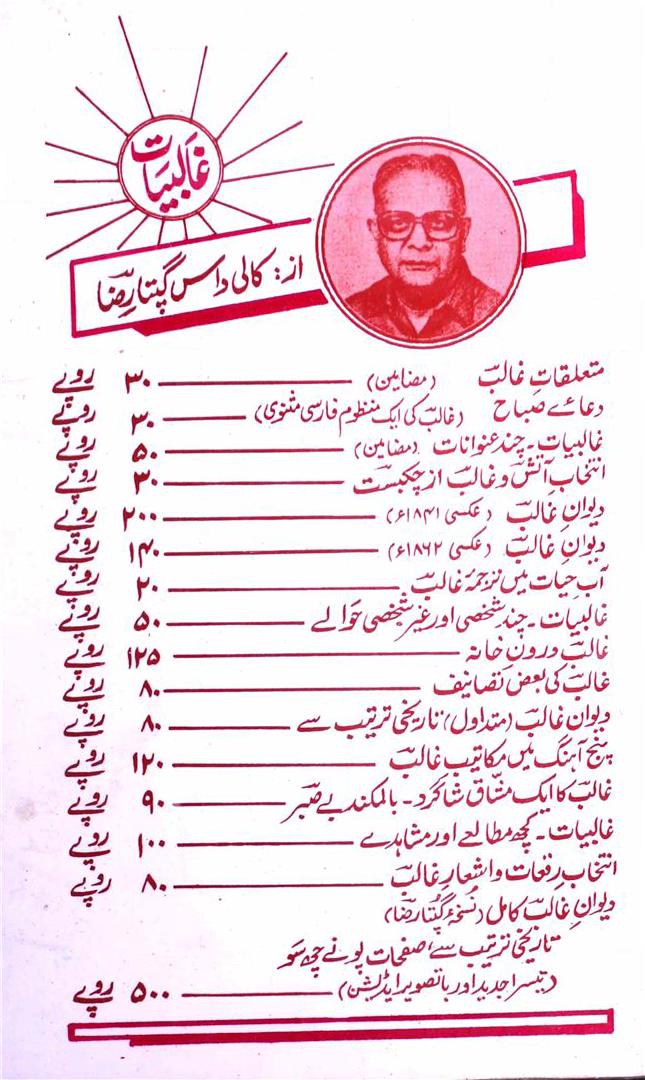 غالبیات
از: کالی داس گپتا رضاؔ
متعلقاتِ غالبؔ (مضامین) ۳۰ روپے
دعائے صباح (غالبؔ کی ایک منظوم فارسی مثنوی) ۳۰ روپے
غالبیات۔ چند عنوانات (مضامین) ۵۰ روپے
انتخابِ آتشؔ و غالبؔ از چکبستؔ ۳۰ روپے
دیوانِ غالبؔ (عکسی ۱۸۴۱ء) ۲۰۰ روپے
دیوانِ غالبؔ (عکسی ۱۸۶۲ء) ۱۴۰ روپے
آبِ حیات میں ترجمۂ غالبؔ ۲۰ روپے
غالبیات۔ چند شخصی اور غیر شخصی حوالے ۵۰ روپے
غالبؔ درونِ خانہ ۱۲۵ روپے
غالبؔ کی بعض تصانیف ۸۰ روپے
دیوانِ غالبؔ (متداول) تاریخی ترتیب سے ۸۰ روپے
پنج آہنگ میں مکاتیبِ غالبؔ ۱۲۰ روپے
غالبؔ کا ایک مشّاق شاگرد۔ بالمکند بے صبرؔ ۹۰ روپے
غالبیات۔ کچھ مطالعے اور مشاہدے ۱۰۰ روپے
انتخابِ رقعات و اشعارِ غالبؔ ۸۰ روپے
دیوانِ غالبؔ کامل (نسخۂ گپتا رضاؔ)
تاریخی ترتیب سے، صفحات پونے چھ سو
(تیسرا جدید اور باتصویر ایڈیشن) ۵۰۰ روپے